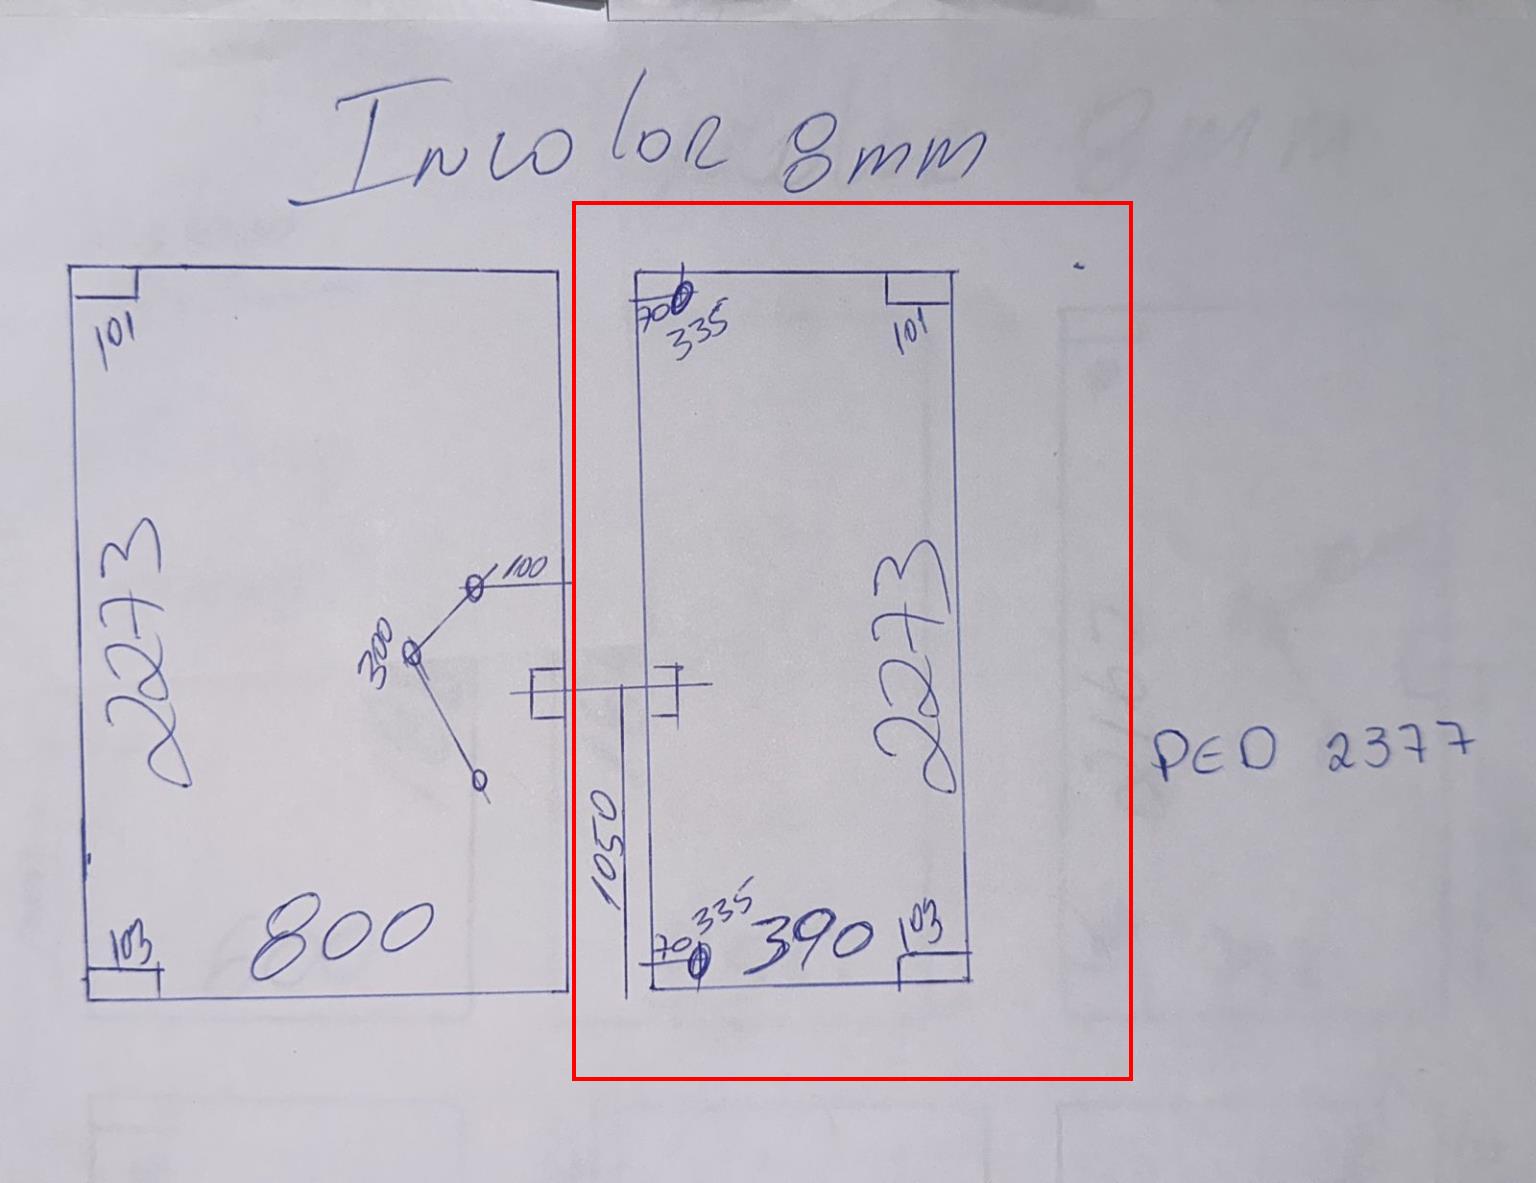 Incolor 8mm
101
2273
100
300
103
800
1050
70
335
101
2273
70
335
390
103
PED 2377